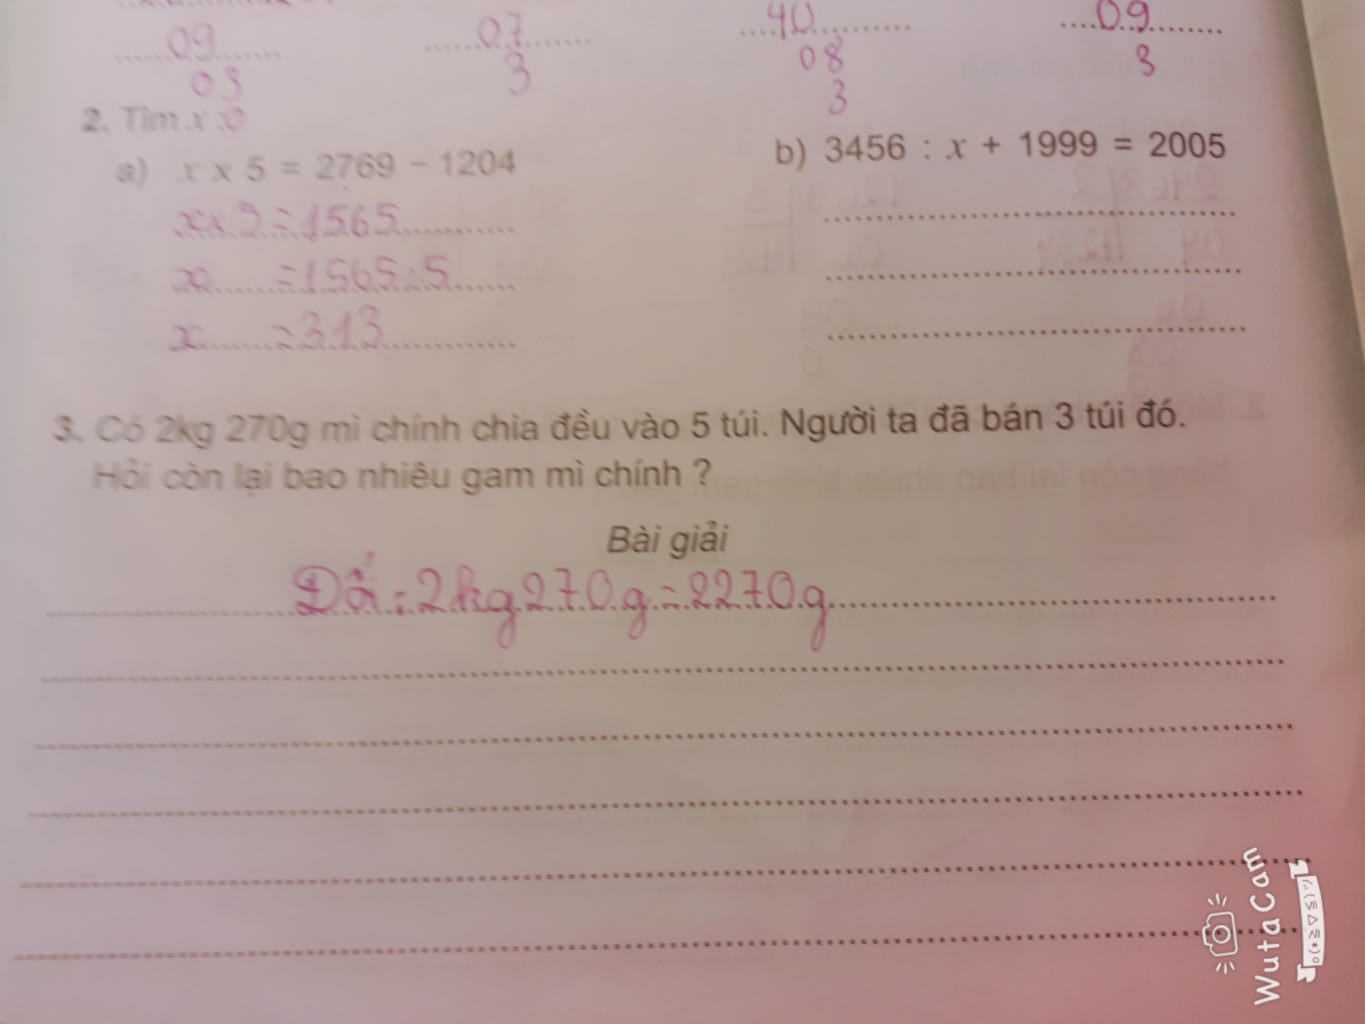 09 07 40 09
03 3 08 3
3
2. Tìm x :
a) x x 5 = 2769 - 1204
b) 3456 : x + 1999 = 2005
x x 5 = 1565
x = 1565 : 5
x = 313
3. Có 2kg 270g mì chính chia đều vào 5 túi. Người ta đã bán 3 túi đó.
Hỏi còn lại bao nhiêu gam mì chính ?
Bài giải
Đổi : 2kg 270g = 2270g
WutaCam